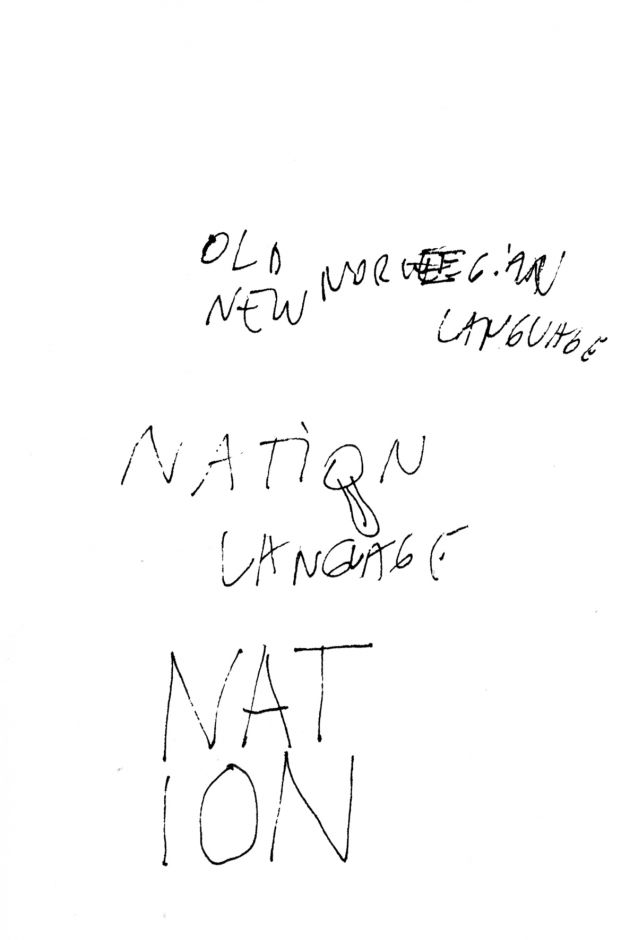 OLD
NEW NORWEGiAN
LANGUAGE
NATiON
LANGUAGE
NAT
iON